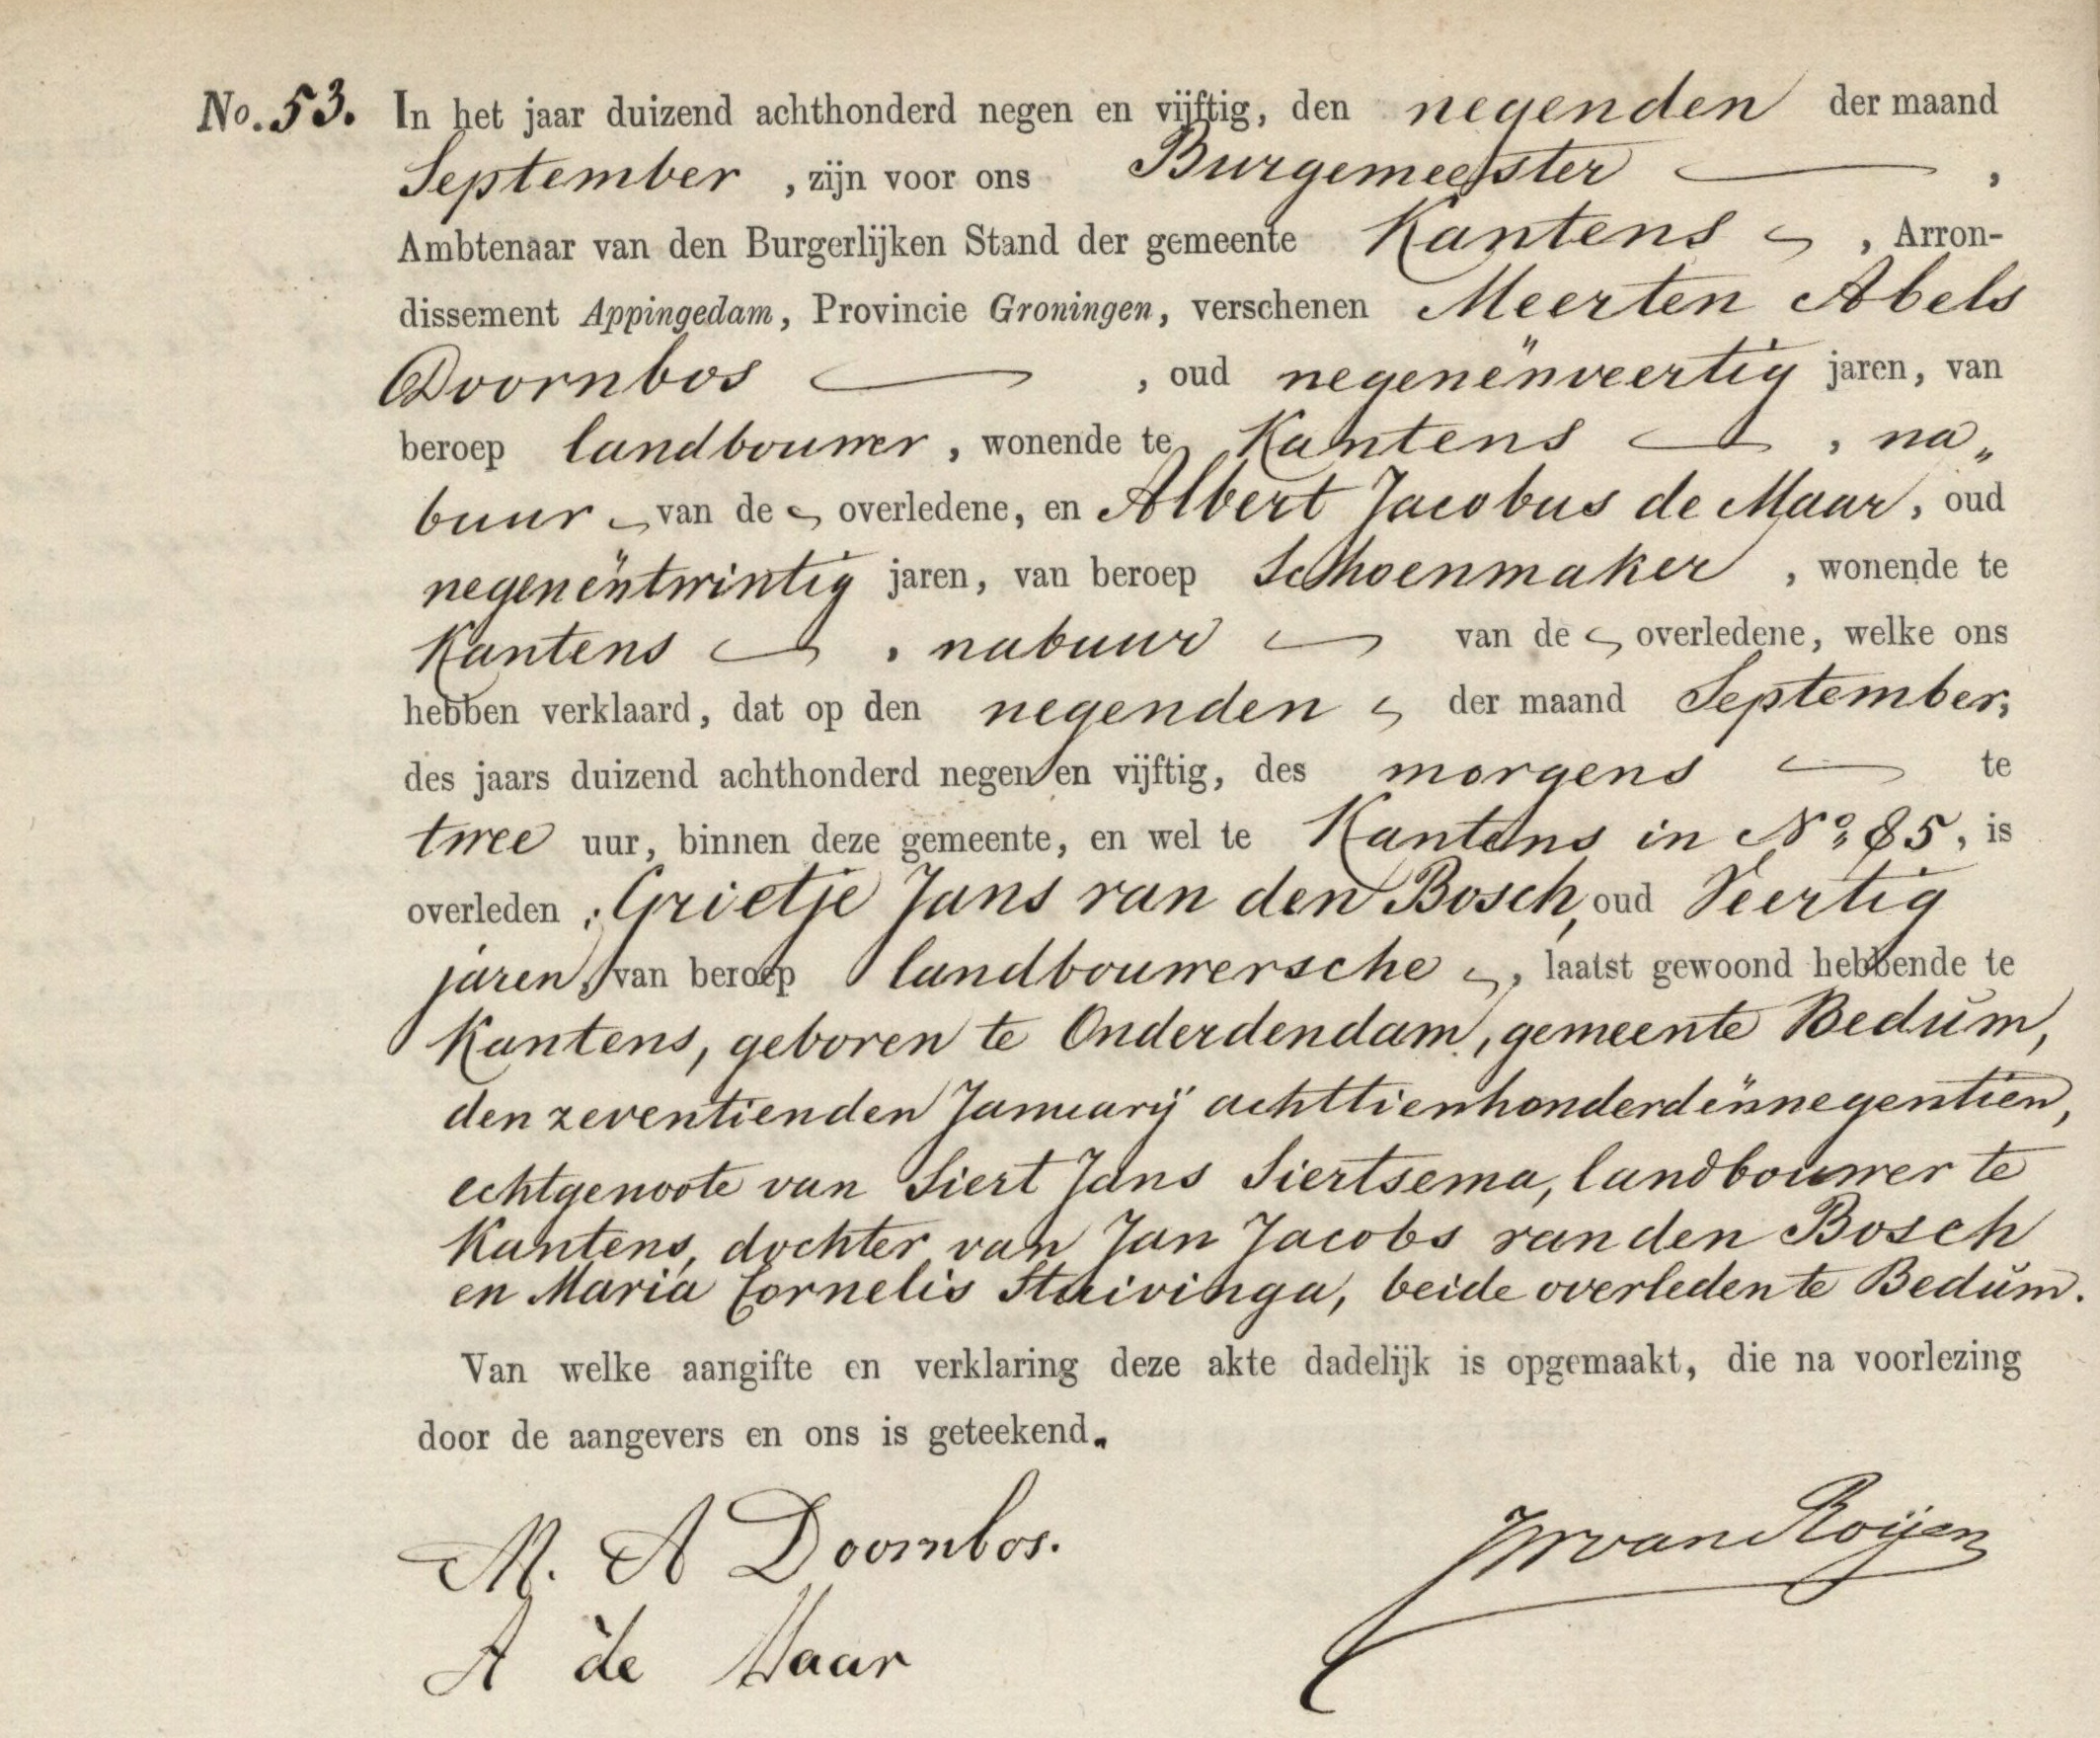 No. 53. In het jaar duizend achthonderd negen en vijftig, den negenden der maand
September, zijn voor ons Burgemeester ,
Ambtenaar van den Burgerlijken Stand der gemeente Kantens, Arron-
dissement Appingedam, Provincie Groningen, verschenen Meerten Abels
Doornbos, oud negenënveertig jaren, van
beroep landbouwer, wonende te Kantens, na„
buur van de overledene, en Albert Jacobus de Maar, oud
negenëntwintig jaren, van beroep Schoenmaker, wonende te
Kantens, nabuur van de overledene, welke ons
hebben verklaard, dat op den negenden der maand September,
des jaars duizend achthonderd negen en vijftig, des morgens te
twee uur, binnen deze gemeente, en wel te Kantens in No. 85, is
overleden: Grietje Jans van den Bosch, oud Veertig
jaren, van beroep landbouwersche, laatst gewoond hebbende te
Kantens, geboren te Onderdendam, gemeente Bedŭm,
den zeventienden Januarij achttienhonderdënnegentien,
echtgenoote van Siert Jans Siertsema, landbouwer te
Kantens, dochter van Jan Jacobs van den Bosch
en Maria Cornelis Stuivinga, beide overleden te Bedŭm.
Van welke aangifte en verklaring deze akte dadelijk is opgemaakt, die na voorlezing
door de aangevers en ons is geteekend.
M. A Doornbos.
JW van Roijen
A de Maar